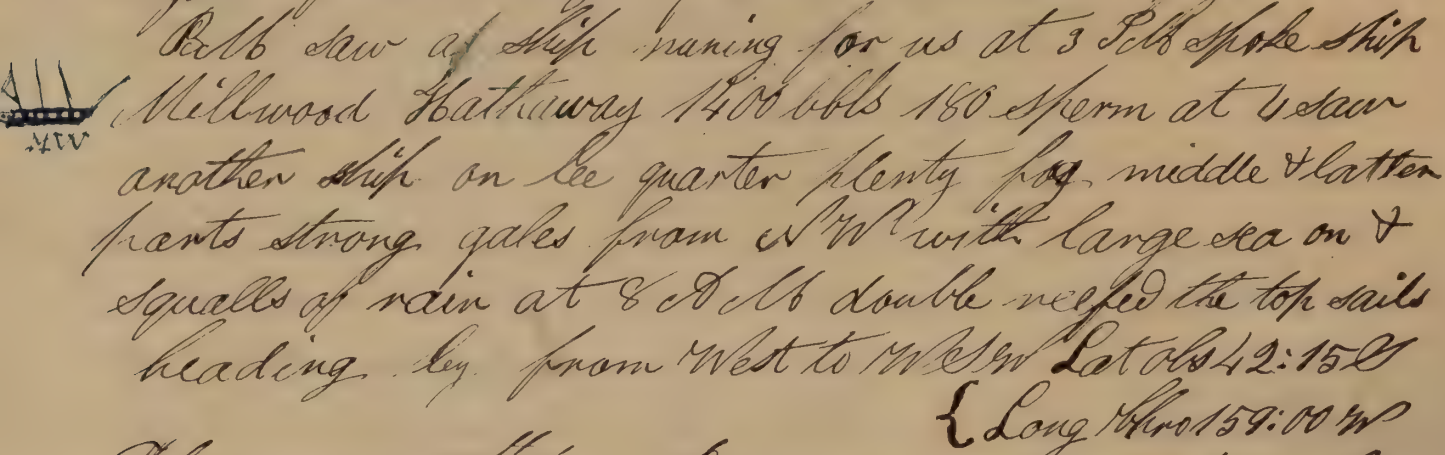 P.M saw a ship runing for us at 3 P M spoke ship
Millwood Hathaway 1400 bbls 180 sperm at 4 saw
another ship on lee quarter plenty fog middle & latter
parts strong gales from N W with large sea on &
squalls of rain at 8 A M double reefed the top sails
heading by from West to W S W Lat obs 42:15 S
{ Long Chro 159:00 W